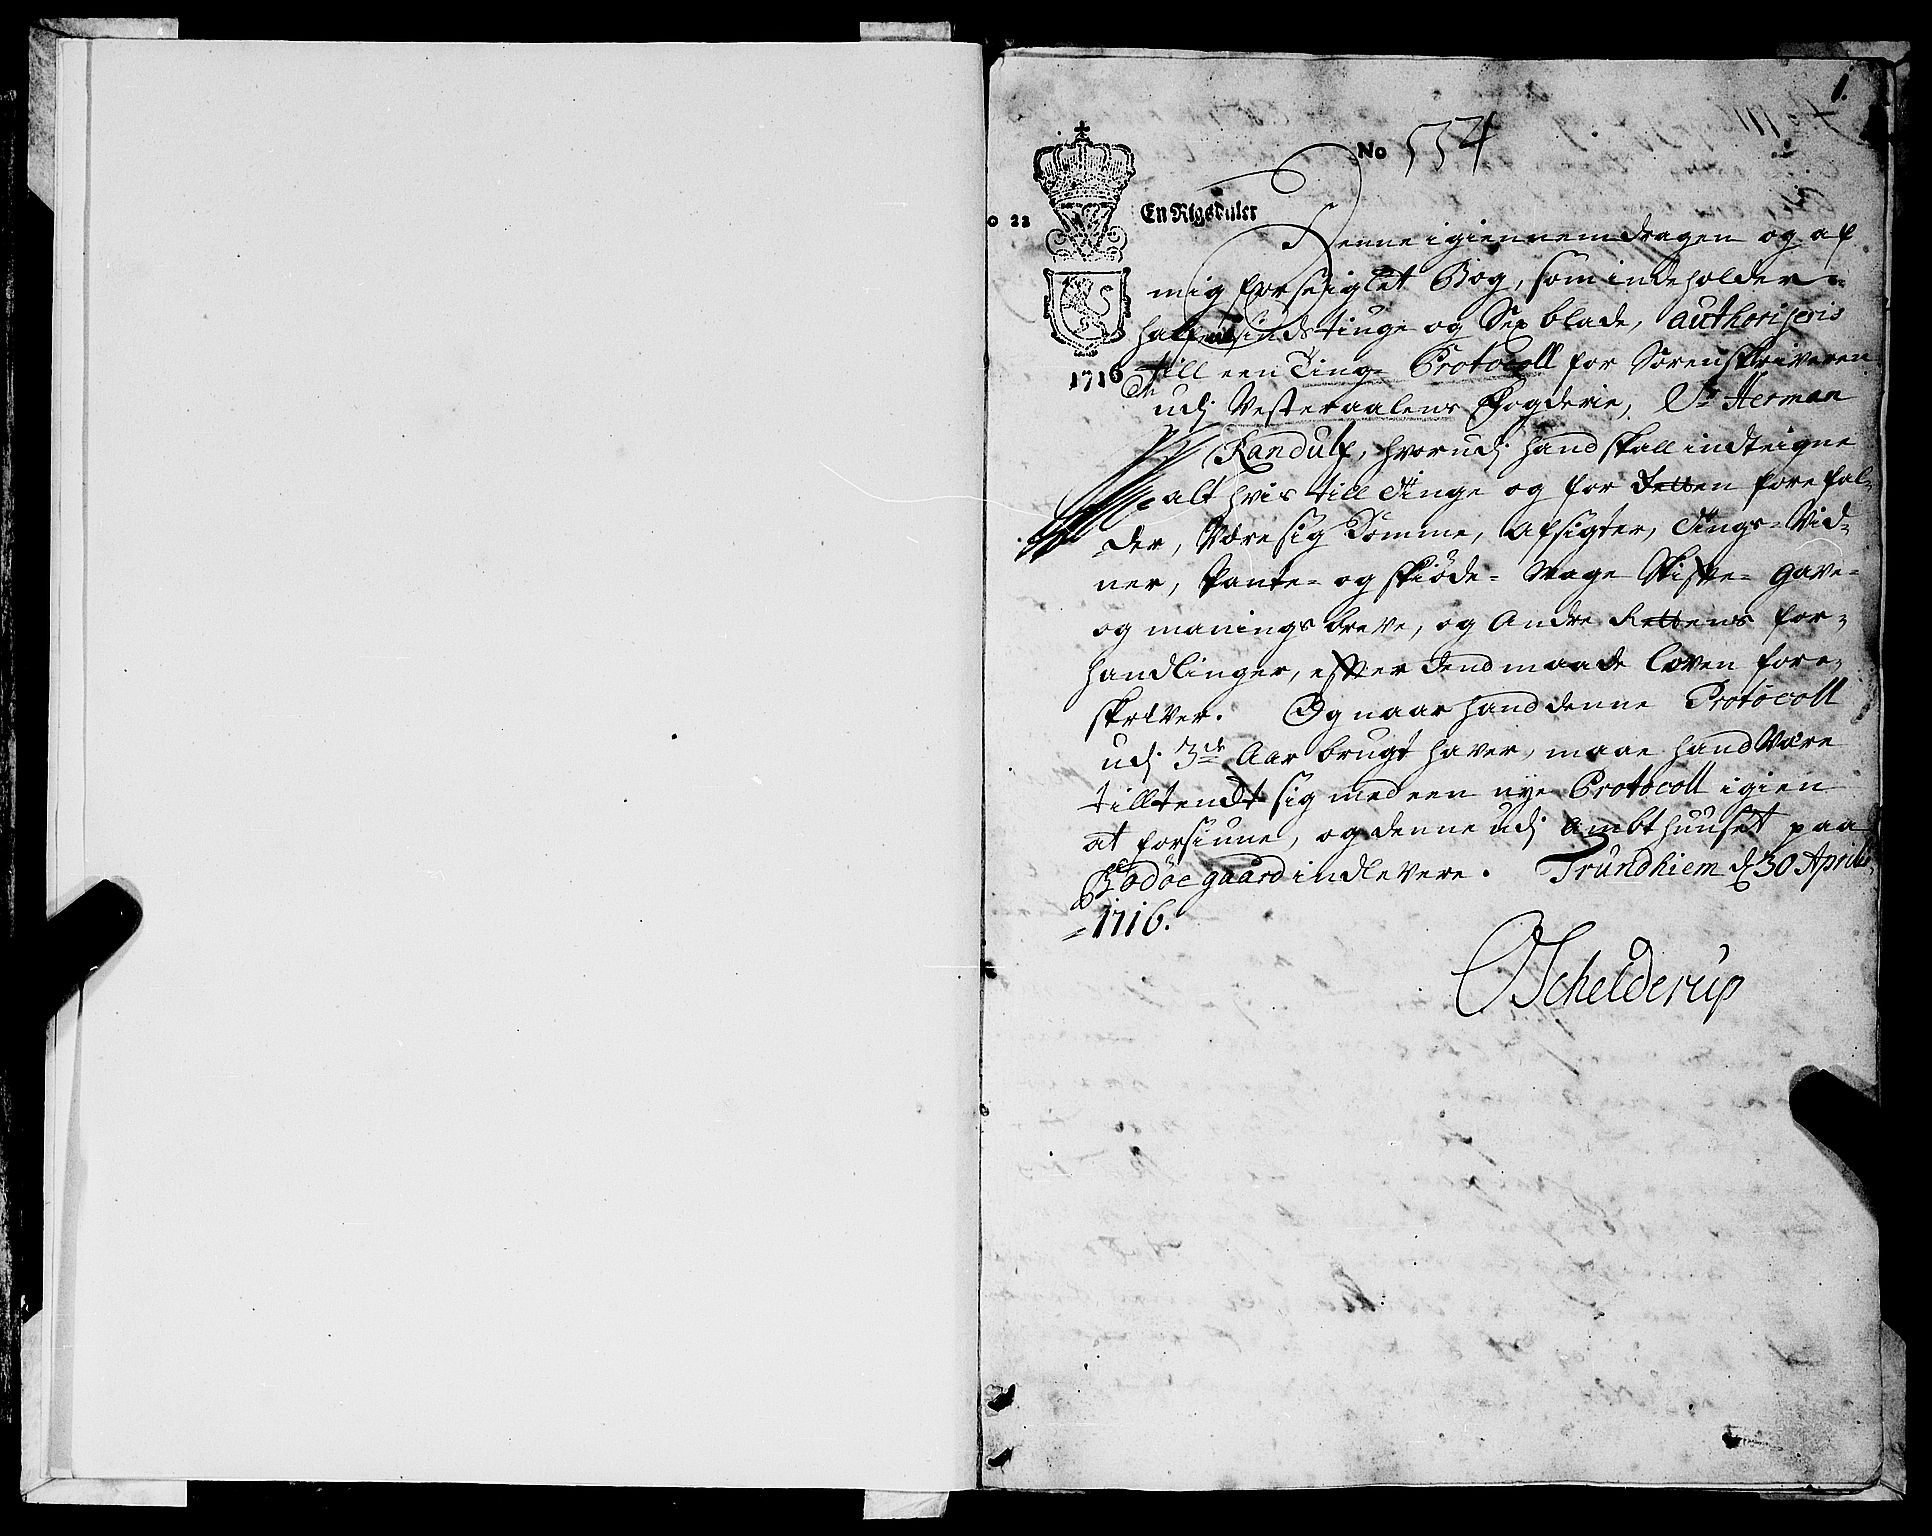 1.
No 534
o 22
En Rigsdaler
1716
Denne igiennemdragen og af
mig forseiglet Bog, som indeholder
halfsindstiuge og Sex blade, authoriseris
till een Ting- Protocoll for Sorenskriveren
udj Vesteraalens Fogderie, Sr Herman
Randulf, hvorudj hand skall indteigne
alt hvis till Tinge og for Retten forefal-
der, Være sig Domme, Afsigter, Tings-Vid-
ner, Pante- og skiøde- Mage Skifte- gave-
og manings breve, og Andre Rettens for-
handlinger, efter dend maade Loven fore-
skriver. Og naar hand denne Protocoll
udj 3de Aar brugt haver, maae hand Være
tilltendkt sig med een nye Protocoll igien
at forsiune, og denne udj Ambthuuset paa
Bodøegaard indlevere. Trundhiem d 30 Aprilis
1716.
OSchelderup